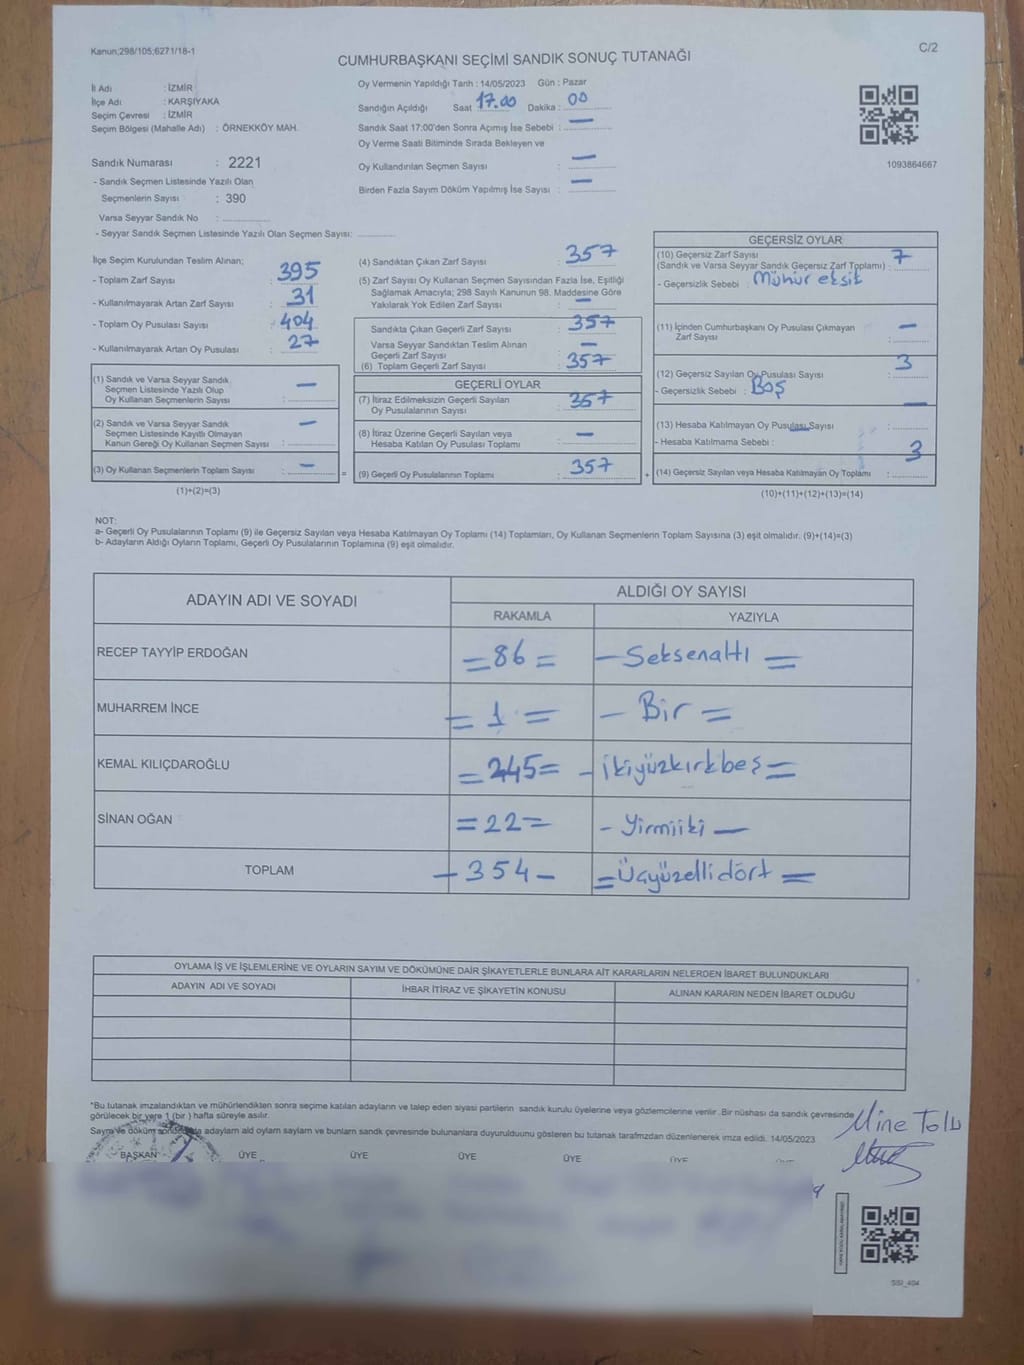 Kanun;298/105;6271/18-1
C/2
CUMHURBAŞKANI SEÇİMİ SANDIK SONUÇ TUTANAĞI
İl Adı : İZMİR
İlçe Adı : KARŞIYAKA
Seçim Çevresi : İZMİR
Seçim Bölgesi (Mahalle Adı) : ÖRNEKKÖY MAH.
Sandık Numarası : 2221
- Sandık Seçmen Listesinde Yazılı Olan
Seçmenlerin Sayısı : 390
Varsa Seyyar Sandık No :
- Seyyar Sandık Seçmen Listesinde Yazılı Olan Seçmen Sayısı:
Oy Vermenin Yapıldığı Tarih : 14/05/2023 Gün : Pazar
Sandığın Açıldığı Saat 17.00 Dakika : 00
Sandık Saat 17:00'den Sonra Açımış İse Sebebi : —
Oy Verme Saati Bitiminde Sırada Bekleyen ve
Oy Kullandırılan Seçmen Sayısı : —
Birden Fazla Sayım Döküm Yapılmış İse Sayısı : —
1093864667
İlçe Seçim Kurulundan Teslim Alınan;
- Toplam Zarf Sayısı : 395
- Kullanılmayarak Artan Zarf Sayısı : 31
- Toplam Oy Pusulası Sayısı : 404
- Kullanılmayarak Artan Oy Pusulası : 27
(1) Sandık ve Varsa Seyyar Sandık
Seçmen Listesinde Yazılı Olup
Oy Kullanan Seçmenlerin Sayısı : —
(2) Sandık ve Varsa Seyyar Sandık
Seçmen Listesinde Kayıtlı Olmayan
Kanun Gereği Oy Kullanan Seçmen Sayısı : —
(3) Oy Kullanan Seçmenlerin Toplam Sayısı : —
(1)+(2)=(3)
(4) Sandıktan Çıkan Zarf Sayısı : 357
(5) Zarf Sayısı Oy Kullanan Seçmen Sayısından Fazla İse, Eşitliği
Sağlamak Amacıyla; 298 Sayılı Kanunun 98. Maddesine Göre
Yakılarak Yok Edilen Zarf Sayısı : —
Sandıkta Çıkan Geçerli Zarf Sayısı : 357
Varsa Seyyar Sandıktan Teslim Alınan
Geçerli Zarf Sayısı : —
(6) Toplam Geçerli Zarf Sayısı : 357
GEÇERLİ OYLAR
(7) İtiraz Edilmeksizin Geçerli Sayılan
Oy Pusulalarının Sayısı : 357
(8) İtiraz Üzerine Geçerli Sayılan veya
Hesaba Katılan Oy Pusulası Toplamı : —
= (9) Geçerli Oy Pusulalarının Toplamı : 357
GEÇERSİZ OYLAR
(10) Geçersiz Zarf Sayısı
(Sandık ve Varsa Seyyar Sandık Geçersiz Zarf Toplamı) : 7
- Geçersizlik Sebebi : Mühür eksik
(11) İçinden Cumhurbaşkanı Oy Pusulası Çıkmayan
Zarf Sayısı : —
(12) Geçersiz Sayılan Oy Pusulası Sayısı : 3
- Geçersizlik Sebebi : Boş
(13) Hesaba Katılmayan Oy Pusulası Sayısı : —
- Hesaba Katılmama Sebebi :
+ (14) Geçersiz Sayılan veya Hesaba Katılmayan Oy Toplamı : 3
(10)+(11)+(12)+(13)=(14)
NOT:
a- Geçerli Oy Pusulalarının Toplamı (9) ile Geçersiz Sayılan veya Hesaba Katılmayan Oy Toplamı (14) Toplamları, Oy Kullanan Seçmenlerin Toplam Sayısına (3) eşit olmalıdır. (9)+(14)=(3)
b- Adayların Aldığı Oyların Toplamı, Geçerli Oy Pusulalarının Toplamına (9) eşit olmalıdır.
ADAYIN ADI VE SOYADI
ALDIĞI OY SAYISI
RAKAMLA YAZIYLA
RECEP TAYYİP ERDOĞAN =86= —Seksenaltı =
MUHARREM İNCE =1= —Bir=
KEMAL KILIÇDAROĞLU =245= —ikiyüzkırkbeş=
SİNAN OĞAN =22= —Yirmiiki—
TOPLAM —354— =Üçyüzellidört=
OYLAMA İŞ VE İŞLEMLERİNE VE OYLARIN SAYIM VE DÖKÜMÜNE DAİR ŞİKAYETLERLE BUNLARA AİT KARARLARIN NELERDEN İBARET BULUNDUKLARI
ADAYIN ADI VE SOYADI İHBAR İTİRAZ VE ŞİKAYETİN KONUSU ALINAN KARARIN NEDEN İBARET OLDUĞU
*Bu tutanak imzalandıktan ve mühürlendikten sonra seçime katılan adayların ve talep eden siyasi partilerin sandık kurulu üyelerine veya gözlemcilerine verilir. Bir nüshası da sandık çevresinde
görülecek bir yere 1 (bir ) hafta süreyle asılır.
adaylarn ald oylarn saylarn ve bunlarn sandk çevresinde bulunanlara duyurulduunu gösteren bu tutanak tarafmzdan düzenlenerek imza edildi. 14/05/2023
Mine
BAŞKAN ÜYE ÜYE ÜYE ÜYE
SSI_404